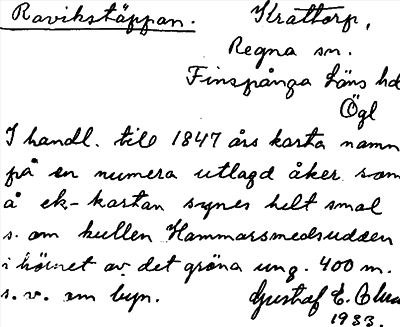 Ravikstäppan. Krattorp,
Regna sn.
Finspånga Läns hd
Ögl
I handl. till 1847 års karta namn
på en numera utlagd åker som
å ek-kartan synes helt smal
s. om kullen Hammarsmedsudden
i hörnet av det gröna ung. 400 m.
s.v. om byn. Gustaf E.
1933.